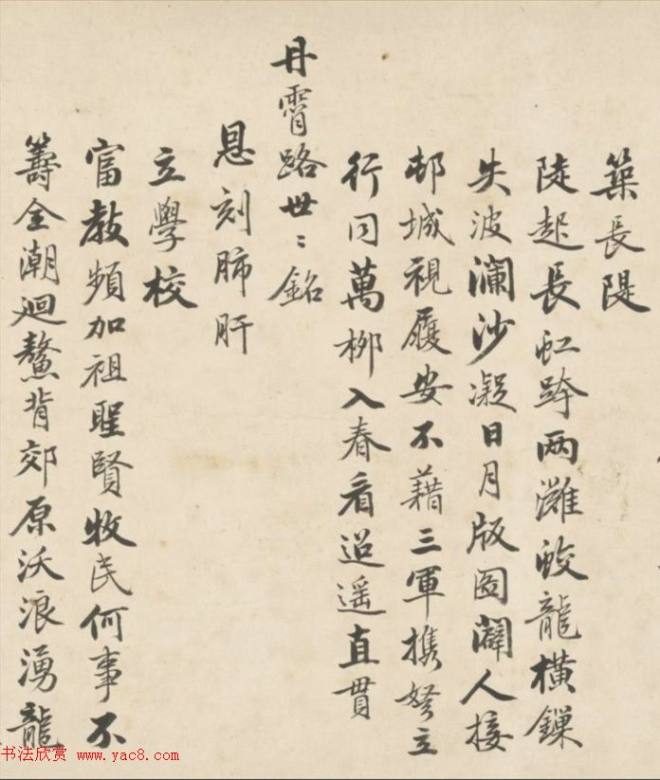 築長隄
陡起長虹跨两灘蛟龍橫鏁
失波瀾沙凝日月版圖闢人接
邨城視履安不藉三軍携弩立
行同萬栁入春看迢遥直貫
丹霄路世〻銘
恩刻肺肝
立學校
富教頻加祖聖賢牧民何事不
籌全潮迴鰲背郊原沃浪湧龍
书法欣赏 www.yac8.com